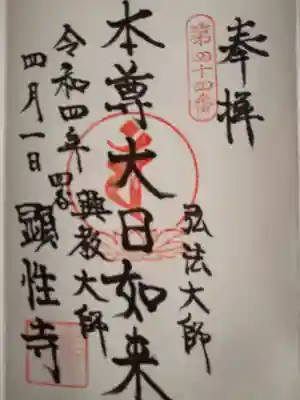 奉拝
第四十四番
弘法大師
本尊大日如来
興教大師
令和四年
四月一日
顕性寺